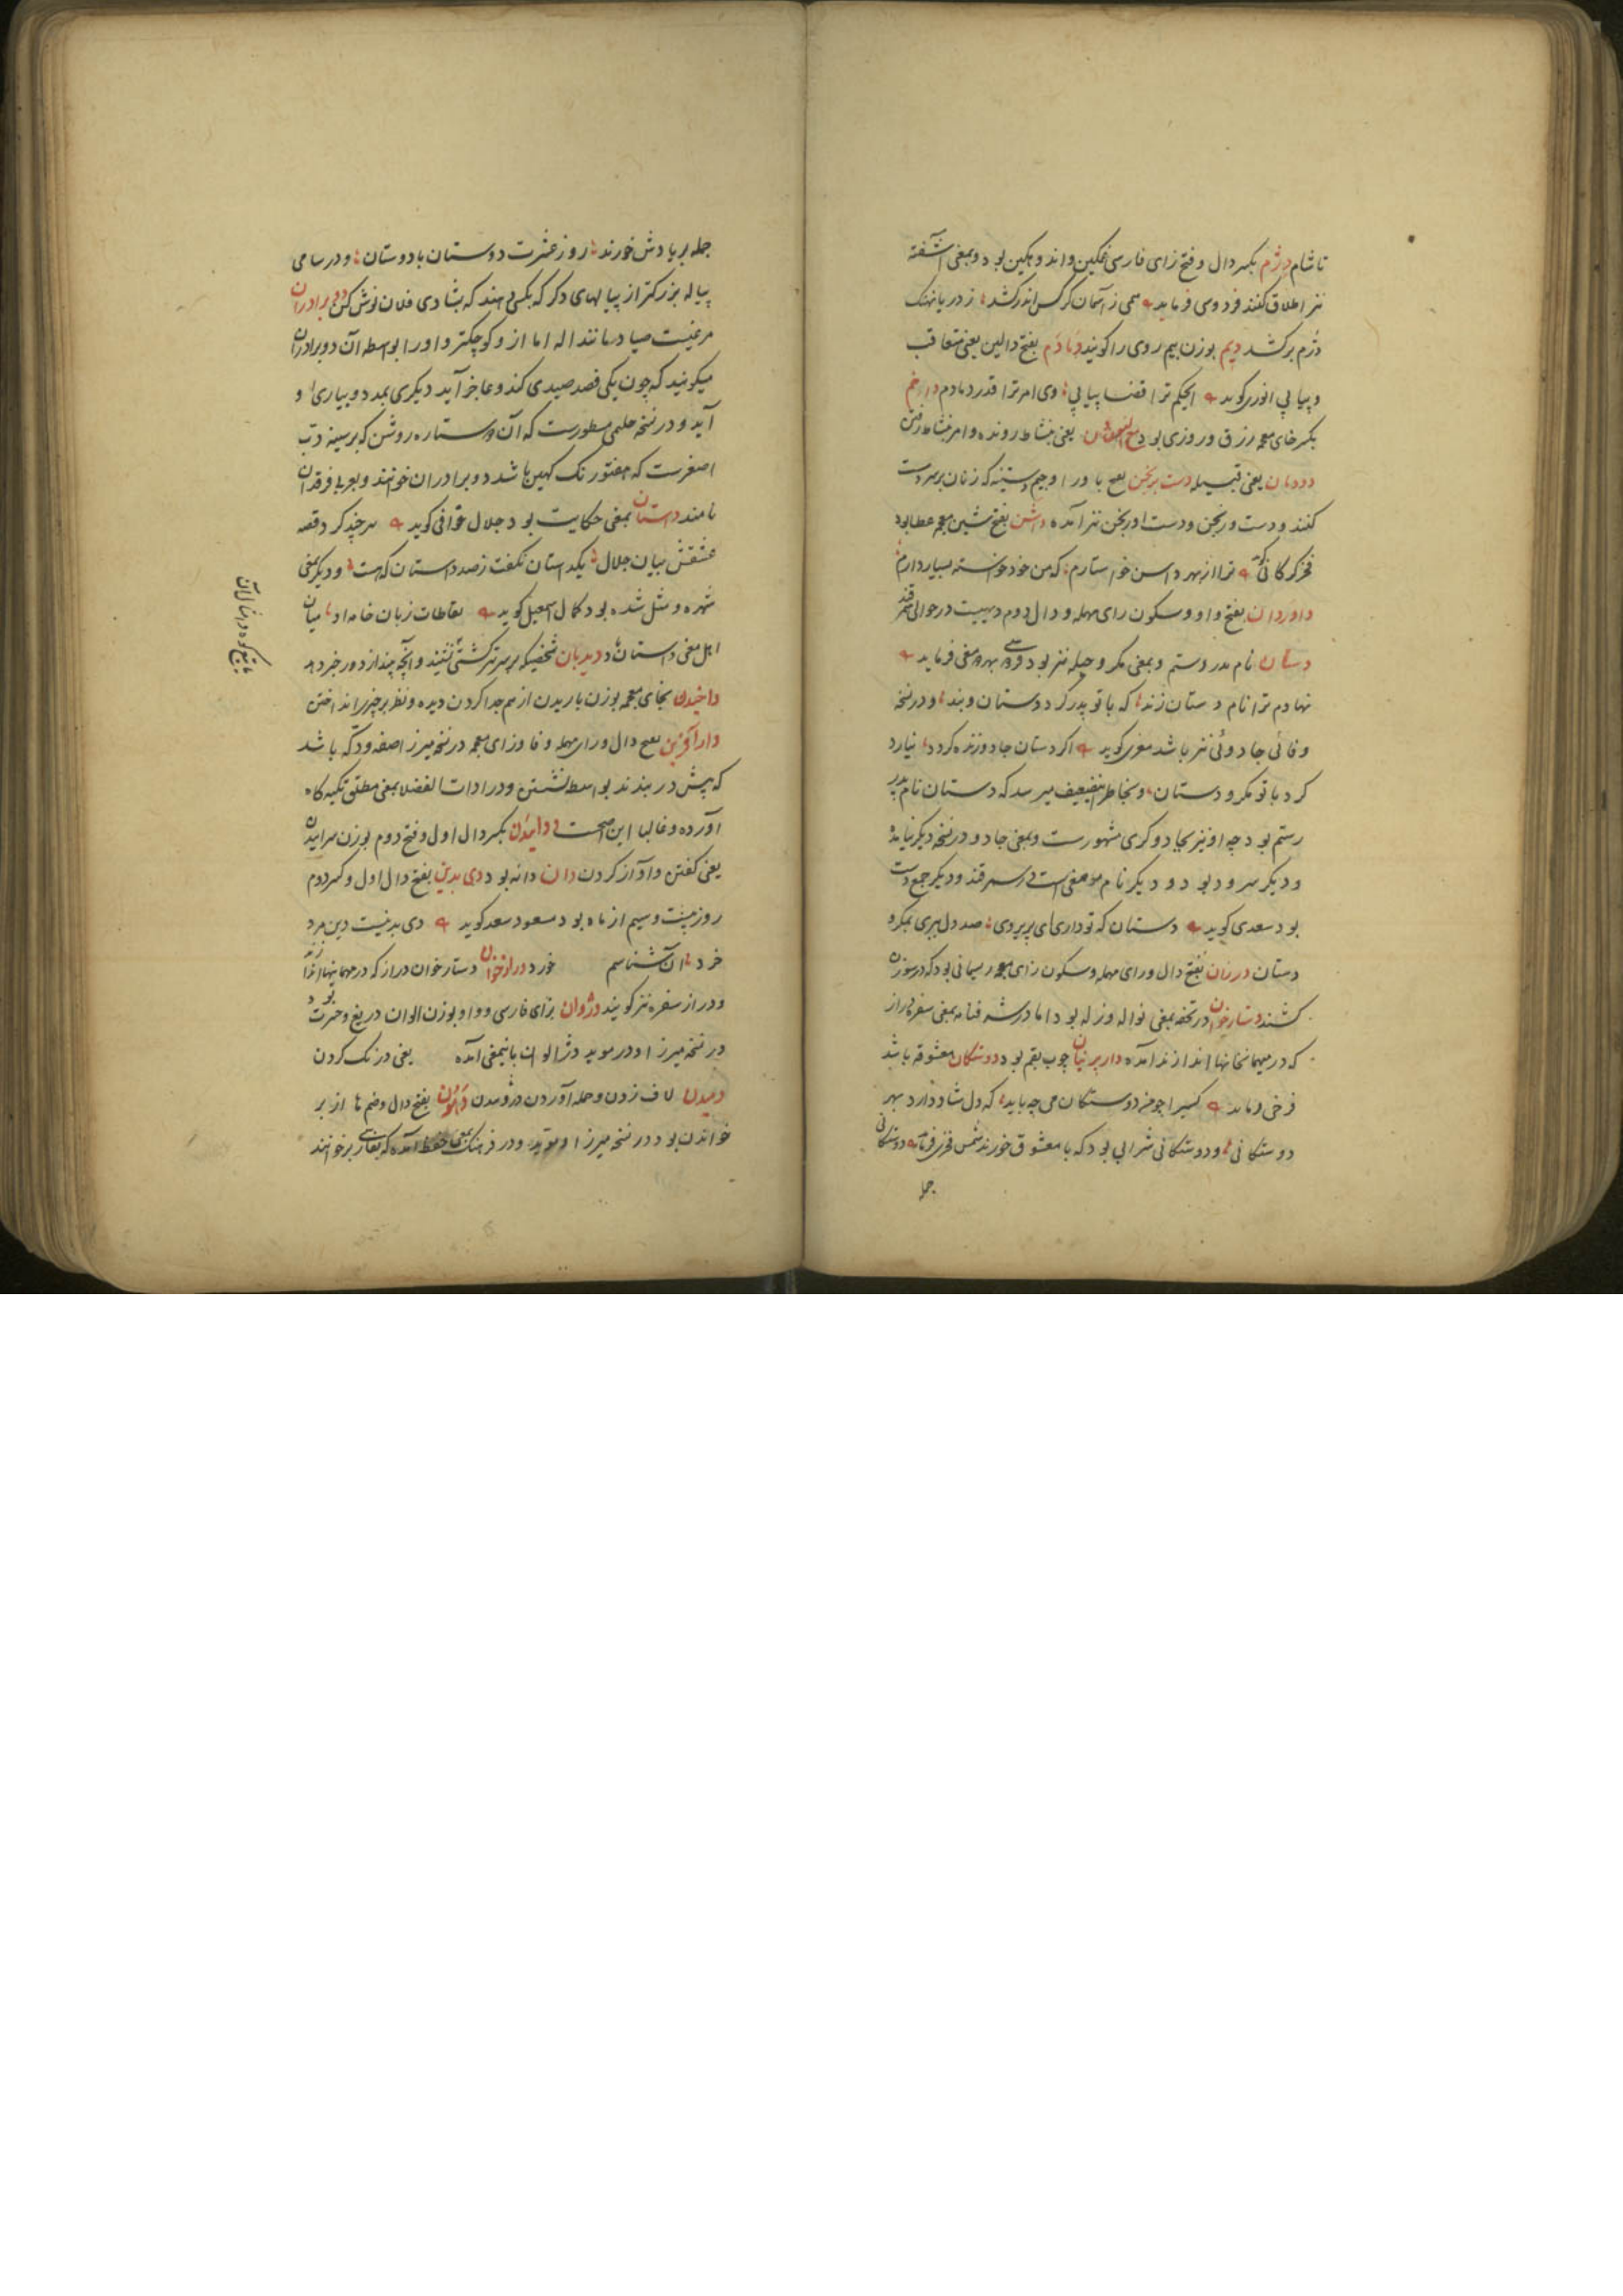 تا شام دژم بکسر دال و فتح زای فارسی غمکین و اندوهکین بود و بمعنی آشفته
نیز اطلاق کنند فردوسی فرماید همی ز آسمان کرکس اندر کشد ز دریا نهنک
دژم برکشد دیم بوزن بیم روی را کویند دمادم بفتح دالین یعنی متعاقب
و پیاپی انوری کوید ای حکم ترا قضا پیاپی وی امر ترا قدر دمادم
بکسر خای معجمه رزق و روزی بود یعنی بنشاط رونده و امر بنشاط رفتن
دودمان یعنی قبیله دست برنجن بفتح با و را و جیم دستینه که زنان بر سر دست
کنند و دست ورنجن و دست اورنجن نیز آمده داشن بفتح شین معجمه عطا بود
فخر کرکانی ترا از بهر داشن خواستارم که من خود خواسته بسیار دارم
داوردان بفتح واو و سکون رای مهمله و دال دوم دهیست در حوالی
دستان نام پدر رستم و بمعنی مکر و حیله نیز بود فردوسی بهر دو معنی فرماید
نهادم ترا نام دستان زند که با تو پدر کرد دستان و بند و در نسخه
وفائی جادوئی نیز باشد معزی کوید اکر دستان جادو زنده کردد نیارد
کرد با تو مکر و دستان و بخاطر این ضعیف میرسد که دستان نام پدر
رستم بود چه او نیز بجادوکری مشهورست و بمعنی جادو در نسخه دیکر نیامده
و دیکر سرود بود و دیکر نام موضعی است در سمرقند و دیکر جمع دست
بود سعدی کوید دستان که تو داری ای پریروی صد دل ببری بمکر و
دستان درزن بفتح دال و رای مهمله و سکون زای معجمه ریسمانی بود که در سوزن
کشند دستارخوان در تحفه بمعنی نواله و زله بود اما در شرفنامه بمعنی سفره دراز
که در میهمانخانها اندازند آمده داربرنیان چوب بقم بود دوستکان معشوقه باشد
فرخی فرماید کسیرا چو من دوستکان می چه باید که دل شاد دارد بهر
دوستکانی و دوستکانی شرابی بود که با معشوق خورند شمس فخری فرماید دوستکانی
جمله
جمله بر یادش خورند روز عشرت دوستان با دوستان و در سامی
پیاله بزرکتر از پیالهای دکر که بکسی دهند که بشادی فلان نوش کن دوبرادران
مرغیست صیاد مانند اله اما ازو کوچکتر و او را بواسطه آن دوبرادران
میکویند که چون یکی قصد صیدی کند و عاجز آید دیکری بمدد و بیاری او
آید و در نسخه حلیمی مسطورست که آن دو ستاره روشن که بر سینه دب
اصغرست که هفتورنک کهین باشد دوبرادران خوانند و بعربی فرقدان
نامند داستان بمعنی حکایت بود جلال عراقی کوید هرچند کرد قصه
عشقش بیان جلال یکداستان نکفت ز صد داستان که هست و دیکر بمعنی
شهره و مثل شده بود کمال اسمعیل کوید لقاطات زبان خامه او میان
اهل معنی داستان شد دیدبان شخصیکه بر سر تیر کشتی نشیند و آنچه بیند از دور خبر دهد
داخیدن بخای معجمه بوزن باریدن از هم جدا کردن دیده و نظر بر چیزی انداختن
دارآفرین بفتح دال و رای مهمله و فا و زای معجمه در نسخه میرزا صفه و دکه باشد
که پیش در بندند بواسطه نشستن و در ادات الفضلا بمعنی مطلق تکیه کاه
آورده و غالبا این اصحست درائیدن بکسر دال اول و فتح دوم بوزن سرائیدن
یعنی کفتن و آواز کردن دان دانه بود دی بدین بفتح دال اول و کسر دوم
روز بیست و سیم از ماه بود مسعود سعد کوید دی بدینست دین مرد
خرد آن شناسم خورد درازخوان دستارخوان دراز که در مهمانیها اندازند
و دراز سفره نیز کویند دژوان بزای فارسی و واو بوزن الوان دریغ و حسرت بود و
در نسخه میرزا و در موید دژالوان باینمعنی آمده یعنی درنک کردن
دمیدن لاف زدن و حمله آوردن و روئیدن بفتح دال و ضم ها از بر
خواندن بود در نسخه میرزا و موید و در فرهنک بمعنی حفظ آمده که بفارسی بر خوانند